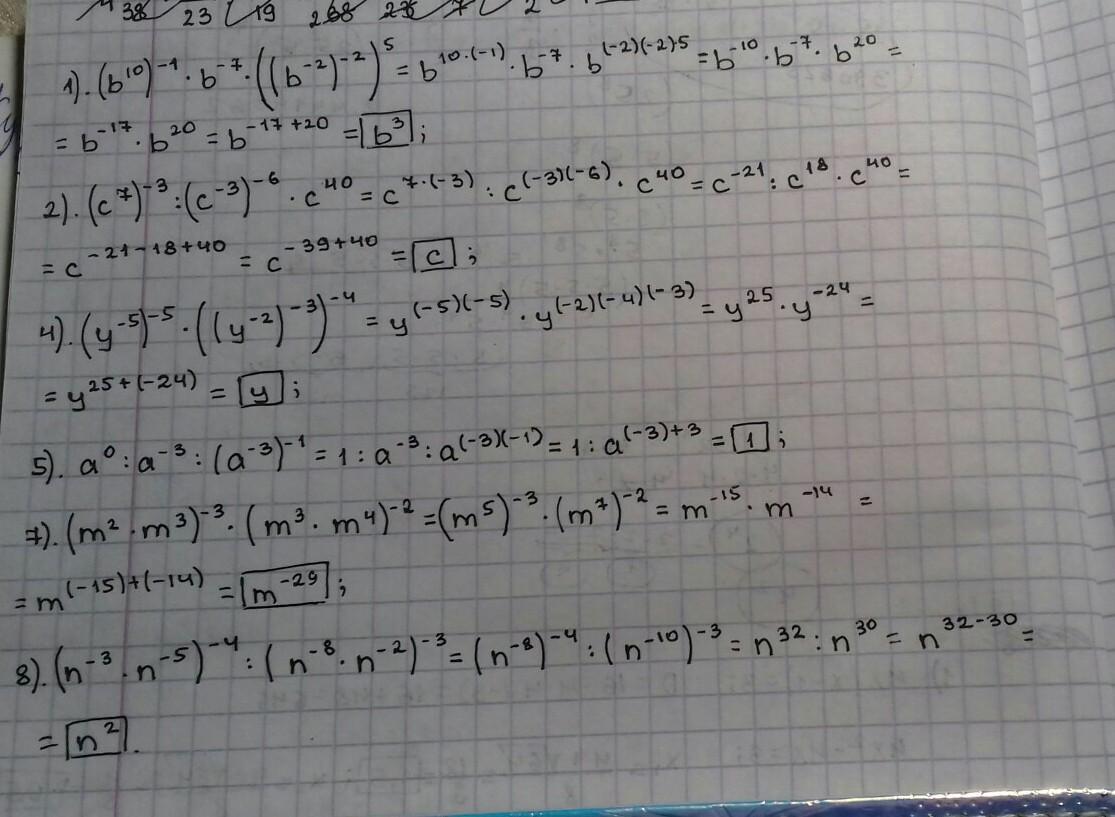 38 23 19 268 7 2
1). (b¹⁰)⁻¹ · b⁻⁷ · ((b⁻²)⁻²)⁵ = b¹⁰·⁽⁻¹⁾ · b⁻⁷ · b⁽⁻²⁾⁽⁻²⁾·⁵ = b⁻¹⁰ · b⁻⁷ · b²⁰ =
= b⁻¹⁷ · b²⁰ = b⁻¹⁷⁺²⁰ = b³ ;
2). (c⁷)⁻³ : (c⁻³)⁻⁶ · c⁴⁰ = c⁷·⁽⁻³⁾ : c⁽⁻³⁾⁽⁻⁶⁾ · c⁴⁰ = c⁻²¹ : c¹⁸ · c⁴⁰ =
= c⁻²¹⁻¹⁸⁺⁴⁰ = c⁻³⁹⁺⁴⁰ = c ;
4). (y⁻⁵)⁻⁵ · ((y⁻²)⁻³)⁻⁴ = y⁽⁻⁵⁾⁽⁻⁵⁾ · y⁽⁻²⁾⁽⁻⁴⁾⁽⁻³⁾ = y²⁵ · y⁻²⁴ =
= y²⁵⁺⁽⁻²⁴⁾ = y ;
5). a⁰ : a⁻³ : (a⁻³)⁻¹ = 1 : a⁻³ : a⁽⁻³⁾⁽⁻¹⁾ = 1 : a⁽⁻³⁾⁺³ = 1 ;
7). (m² · m³)⁻³ · (m³ · m⁴)⁻² = (m⁵)⁻³ · (m⁷)⁻² = m⁻¹⁵ · m⁻¹⁴ =
= m⁽⁻¹⁵⁾⁺⁽⁻¹⁴⁾ = m⁻²⁹ ;
8). (n⁻³ · n⁻⁵)⁻⁴ : (n⁻⁸ · n⁻²)⁻³ = (n⁻⁸)⁻⁴ : (n⁻¹⁰)⁻³ = n³² : n³⁰ = n³²⁻³⁰ =
= n² .